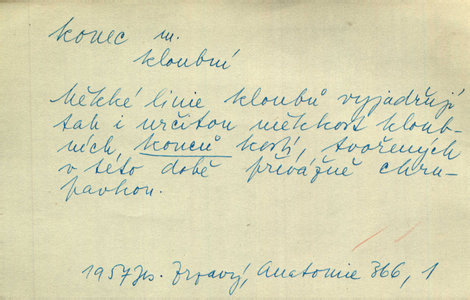 konec m.
kloubní
Měkké linie kloubů vyjadřují
tak i určitou měkkost kloub-
ních konců kostí, tvořených
v této době převážně chru-
pavkou.
1957 Zrzavý, Anatomie 366, 1